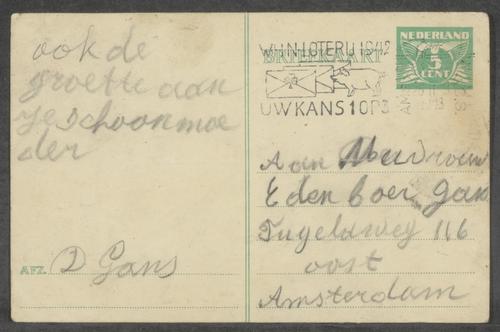 ook de
groette aan
je schoonmoe
der
AFZ. D Gans
NEDERLAND
5
CENT
BRIEFKAART
WIJNLOTERIJ 1942
UW KANS 1 OP 3
Aan Mevrouw
E den boer Gans
Tugelaweg 116
oost
Amsterdam